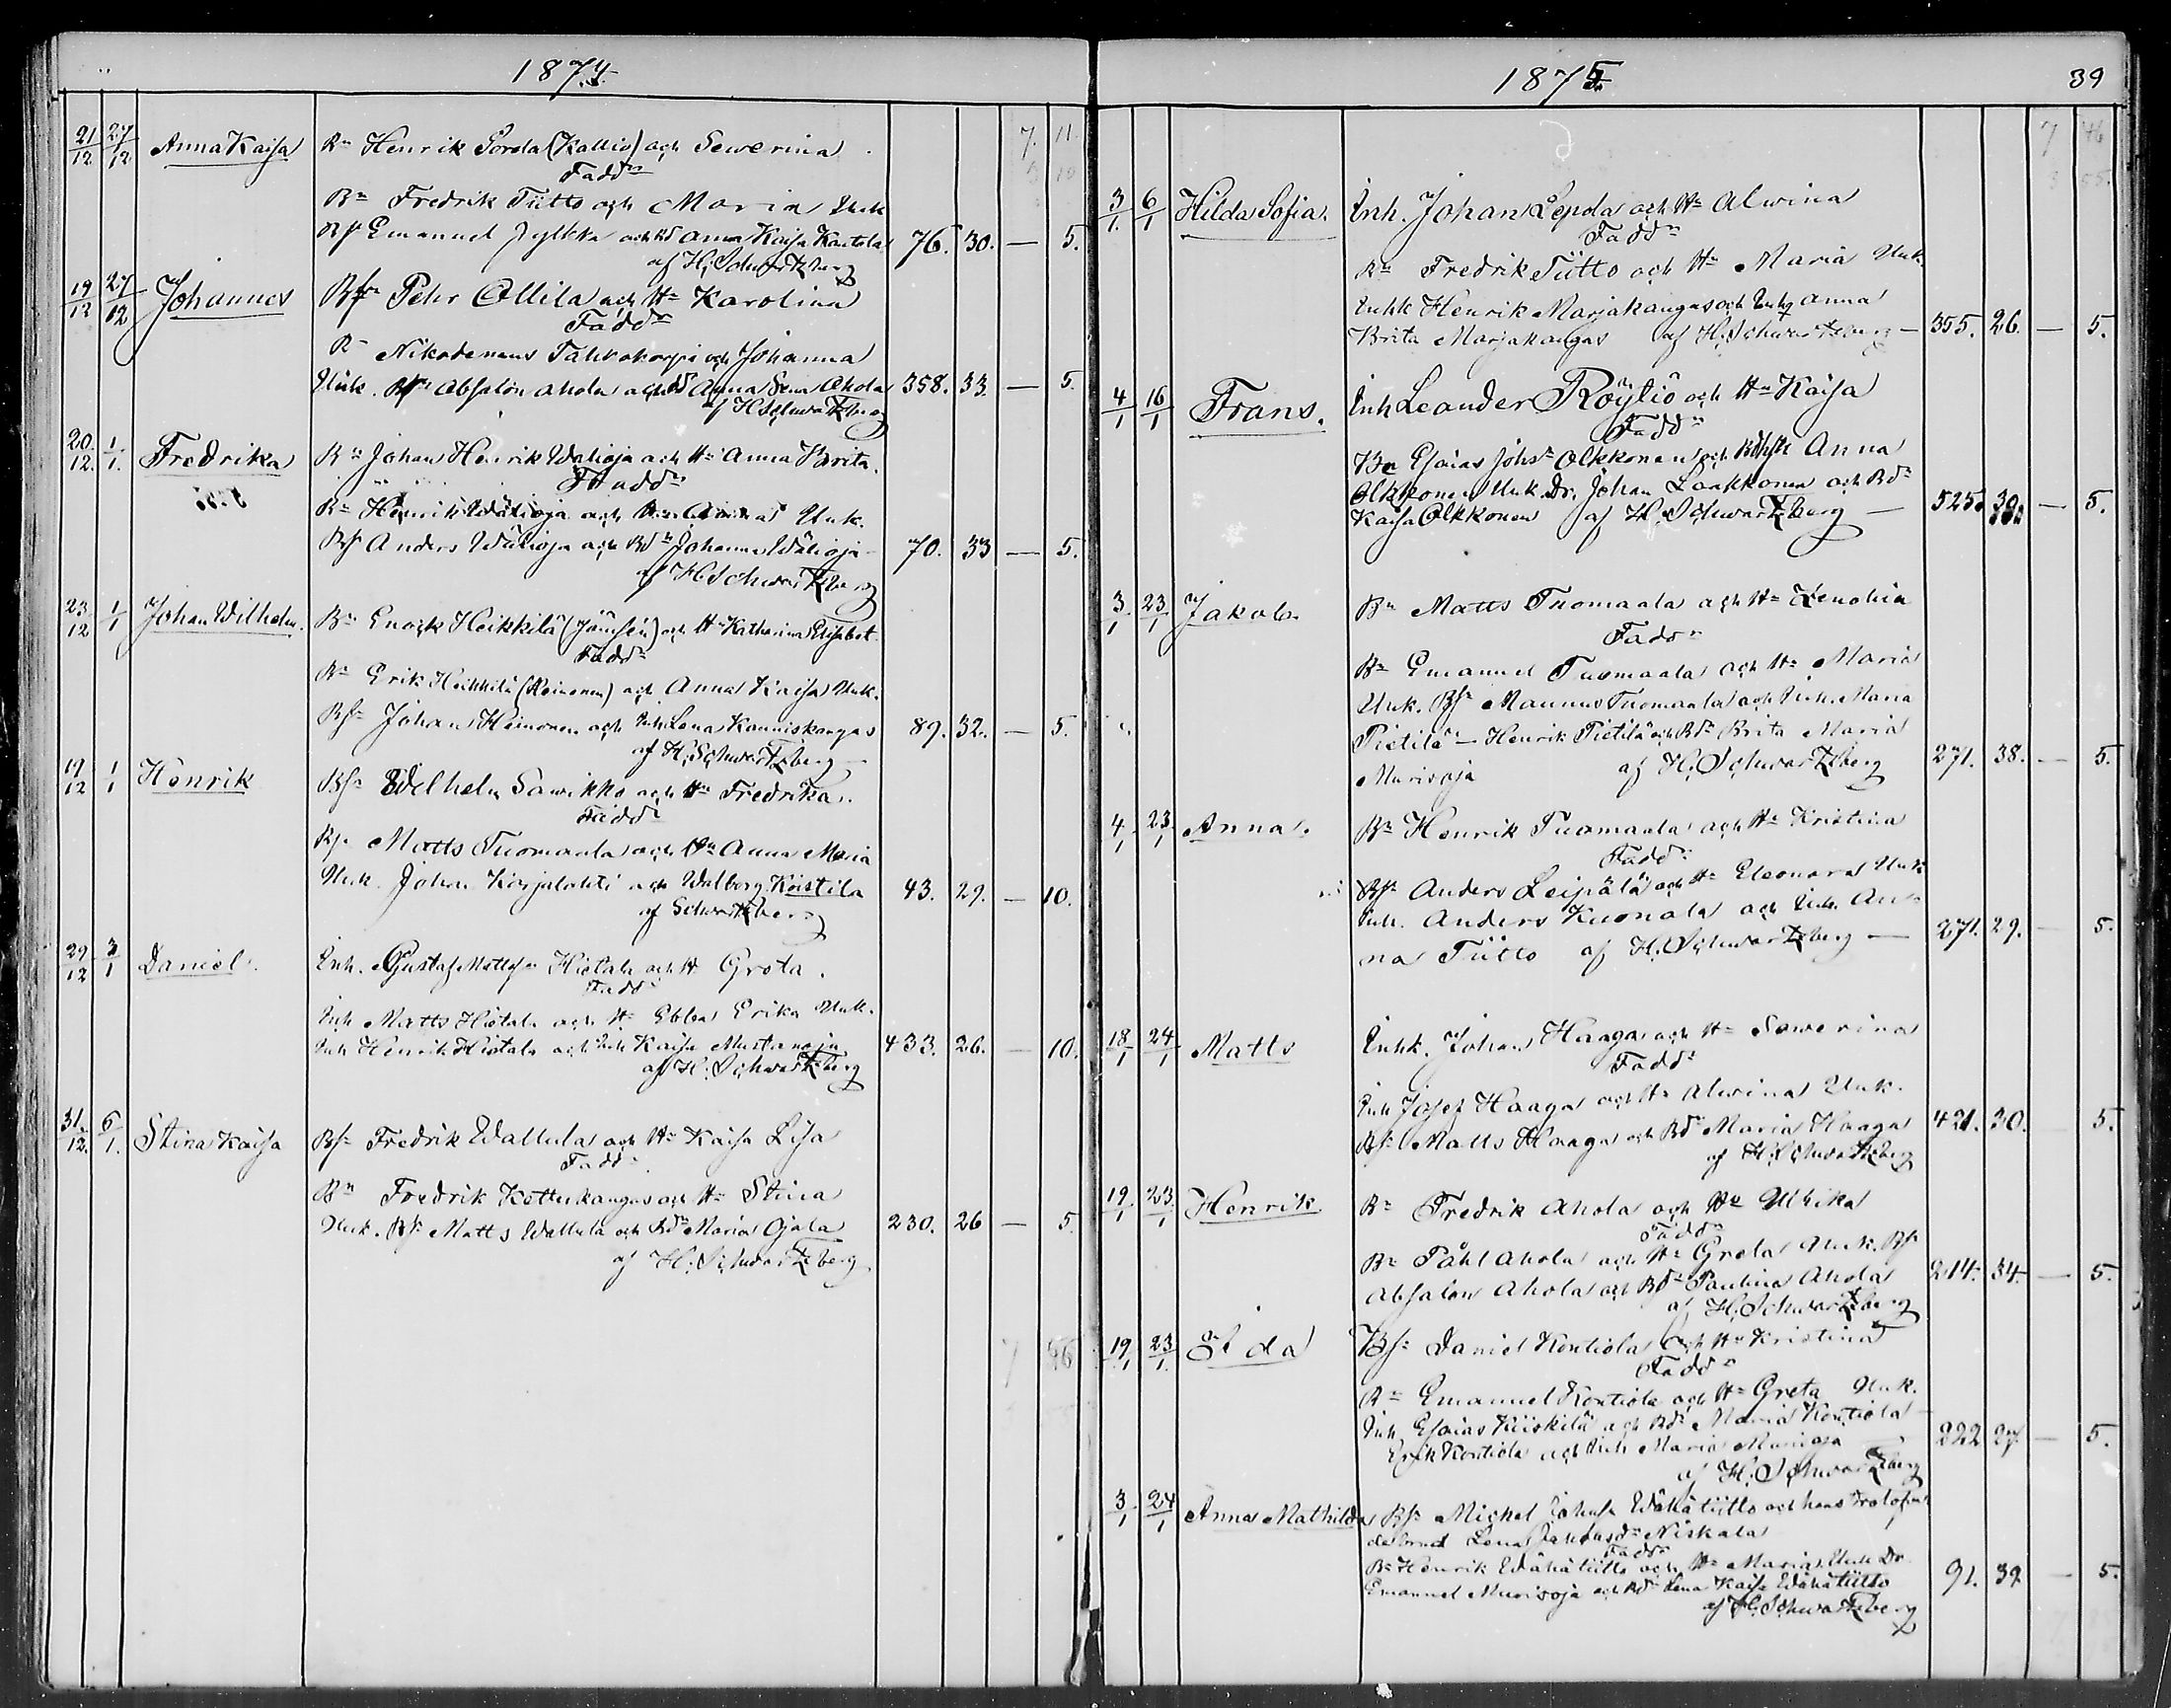 1874.
21/12 27/12 Anna Kaisa Bn Henrik Sorola (Kallio) och Sewerina 7. 11.
Faddr
Bn Fredrik Tiitto och Maria Unk
Bs Emanuel Jylkkä och Bd Anna Kaisa Kantola 76. 30. — 5.
af H. Schwartzberg
19/12 27/12 Johannes Bsn Pehr Ollila och Hu Karolina
Faddr
Bn Nikodemus och Johanna
Unk. Bsn Absalon Ahola och Bd Anna Lena Ahola 358. 33. — 5.
af H Schwartzberg
20/12. 1/1. Fredrika Bn Johan Henrik Wälioja och Hu Anna Brita.
Faddr
Bn Henrik Wälioja och Unk.
Bs Anders Wälioja och Bdr Johanna Wälioja 70. 33 — 5.
af H. Schwartzberg
23/12 1/1 Johan Wilhelm. Bn Enock Heikkilä (Jämsén) och Hu Katharina Elisabet
Faddr
Bn Erik Heikkilä (Heinonen) och Anna Kaisa Unk.
Bsn Johan Heinonen och Inh Lena Kanniskangas 89. 32. — 5.
af H. Schwartzberg
19/12 1/1 Henrik Bsn Wilhelm Sawikko och Hu Fredrika.
Faddr
Bs. Matts Tuomaala och Hu Anna Maria
Unk. Johan Karjalahti och Walborg Koistila 43. 29. — 10.
af Schwartzberg
29/12 3/1 Daniel. Inh. Gustaf Mattsn Hietala och H Greta.
Faddr
Inh Matts Hietala och Hu Ebba Erika Unk.
Inh Henrik Hietala och Inh Kaisa Mustanoja 433. 26. — 10.
af H. Schwartzberg
31/12. 6/1. Stina Kaisa Bsn Fredrik Wallula och Hu Kaisa Lisa
Faddr
Bn Fredrik Kettukangas och Hu Stina
Unk. Bs Matts Wallula och Bdr Maria Ojala 230. 26 — 5
af H. Schwartzberg
7 46
1875. 39
7 46
3/1. 6/1 Hilda Sofia. Inh. Johan Leppla och Hu Alwina
Faddr
Bn Fredrik Tiitto och Hu Maria Unk.
Inhk Henrik Marjakangas och Inhg Anna
Brita Marjakangas af H. Schwartzberg — 355. 26. — 5.
4/1 16/1 Frans. Inh Leander Röytiö och Hu Kaisa
Faddr
Bn Esaias Johsn Olkkonen och Anna
Olkkonen Unk. Dr. Johan Laakkonen och Bdr
Kaisa Olkkonen af H. Schwartzberg — 525. 30. — 5.
3/1 23/1 Jakob. Bn Matts Tuomaala och Hu Zenobia
Faddr
Bn Emanuel Tuomaala och Hu Maria
Unk. Bs Maunus Tuomaala och Inh. Maria
Pietilä — Henrik Pietilä och Bdr Brita Maria
Murisoja af H. Schwartzberg 271. 38. — 5.
4/1 23/1 Anna. Bn Henrik Tuomaala och Hu Kristina
Faddr
Bsn Anders Leipälä och Hu Eleonora Unk
Inh. Anders Kuonala och Inh. An-
na Tiitto af H. Schwartzberg — 271. 29. — 5.
18/1 24/1 Matts Inhk. Johan Haaga och Hu Sewerina
Faddr
Inh Josef Haaga och Hu Alwina Unk.
Bs Matts Haaga och Bdr Maria Haaga 421. 30. 5.
af H. Schwartzberg
19/1 23/1 Henrik Bn Fredrik Ahola och Hu Ulrika
Faddr
Bn Påhl Ahola och Hu Greta Unk. Bs
Absalon Ahola och Bdr Paulina Ahola 214. 34. — 5.
af H. Schwartzberg
19/1 23/1. Ida Bsn Daniel Kontiola och Hu Kristina
Faddr
Bn Emanuel Kontiola och Hu Greta Unk.
Inh. Esaias Kiiskilä och Bdr Maria Kontiola
Erik Kontiola och Inh Maria Murisoja 222 27. — 5.
af H. Schwartzberg
3/1 24/1 Anna Mathilda Bsn Michel Johsn Wähätiitto och hans trolofva-
de brud Lena Niskala
Faddr
Bn Henrik Wähätiitto och Hu Maria Unk Dr
Emanuel Murisoja och Bdr Lena Kaisa Wähätiitto 91. 39 — 5.
af H. Schwartzberg